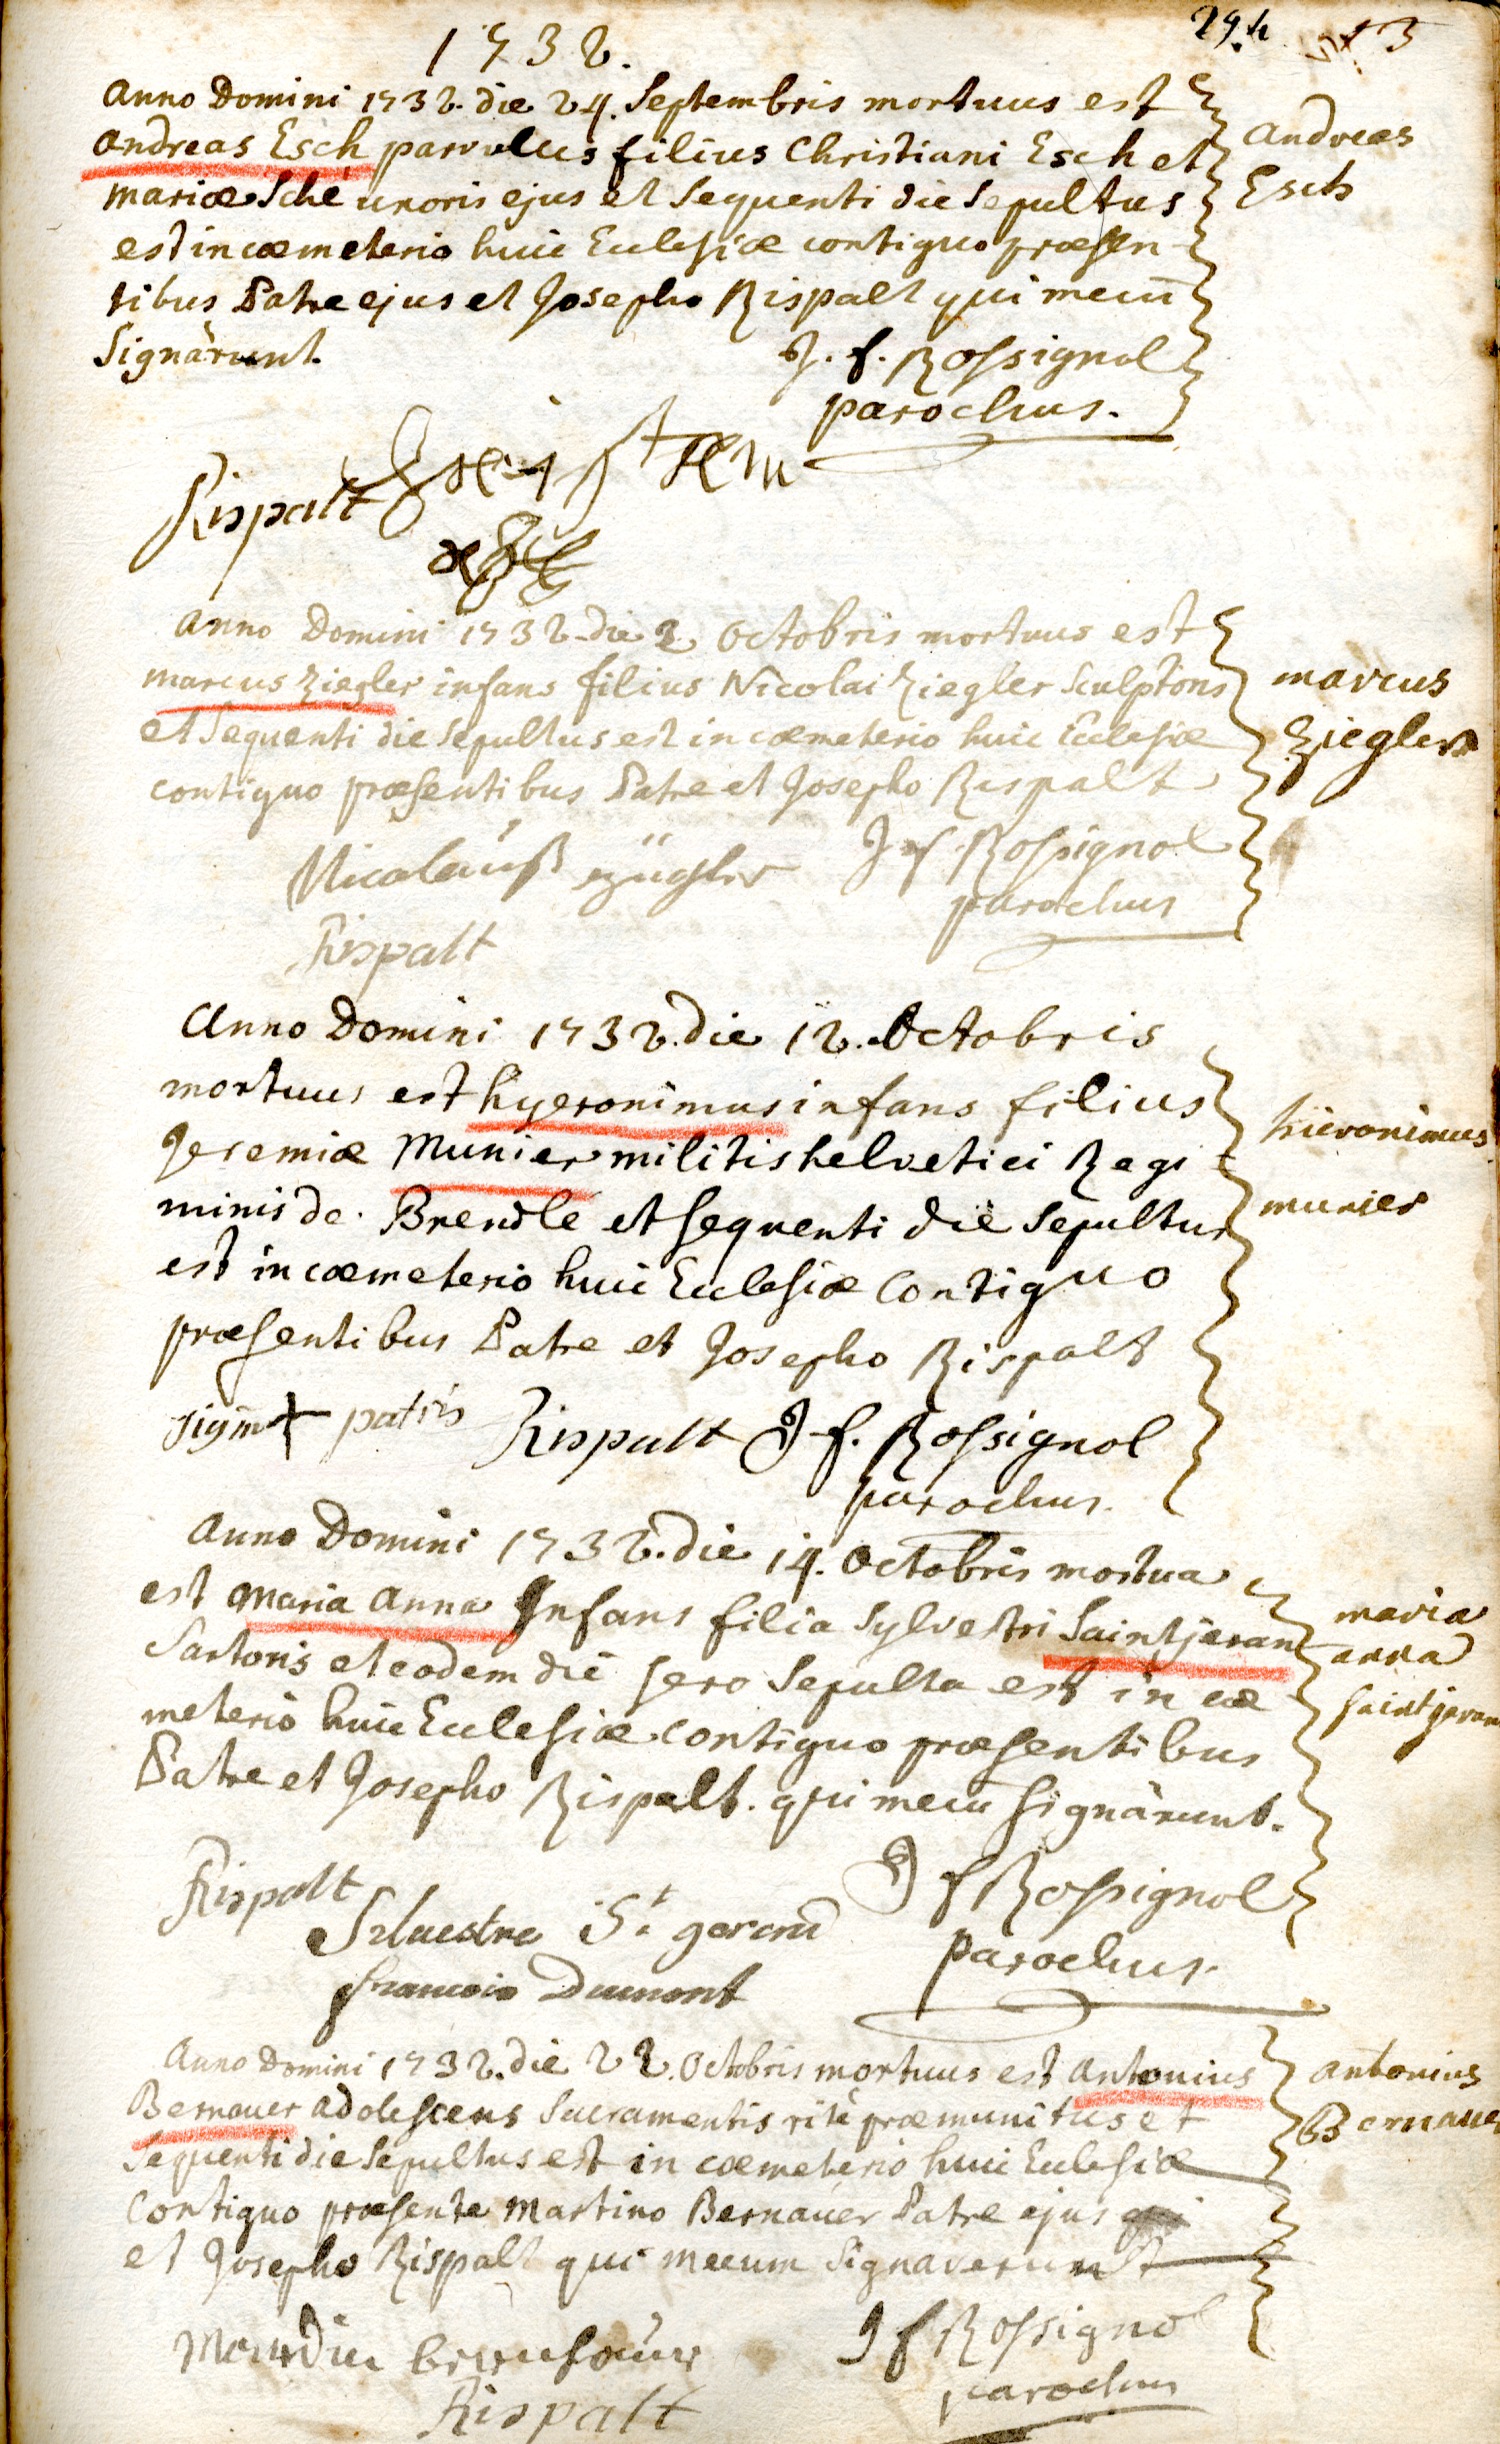 1732.
Anno Domini 1732. die 24. Septembris mortuus est
Andreas Esch parvulus filius Christiani Esch et
mariæ Sché uxoris ejus et Sequenti die Sepultus
est in cæmeterio huic Ecclesiæ contiguo præsen-
tibus Patre ejus et Josepho Rispalt qui mecū
Signârunt.
Andreas
Esch
J. f. Rossignol
parochus.
Rispalt
Anno Domini 1732. die 2. Octobris mortuus est
marcus Ziegler infans filius Nicolai Ziegler Sculptoris
et Sequenti die Sepultus est in cæmeterio huic Ecclesiæ
contiguo præsentibus Patre et Josepho Rispalt
marcus
Ziegler
J f. Rossignol
parochus
Nicolauß
Rispalt
Anno Domini 1732. die 12. Octobris
mortuus est hyeronimus infans filius
Jeremiæ Munier militis helvetici Regi
minis de. Brendle et sequenti die Sepultus
est in cæmeterio huic Ecclesiæ Contiguo
præsentibus Patre et Josepho Rispalt
hieronimus
munier
signū + patris Rispalt J. f. Rossignol
parochus.
Anno Domini 1732. die 14. Octobris mortua
est Maria Anna Infans filia Sylvestri Saintjeran
Sartoris et eodem die sero Sepulta est in cæ
meterio huic Ecclesiæ contiguo præsentibus
Patre et Josepho Rispalt. qui mecū signârunt.
maria
anna
saintjeran
J f Rossignol
parochus.
Rispalt
Silvestre St geran
francois Dumont
Anno Domini 1732. die 22. Octobris mortuus est Antonius
Bernauer adolescens Sacramentis ritè præmunitus et
Sequenti die Sepultus est in cæmeterio huic Ecclesiæ
Contiguo præsente Martino Bernauer Patre ejus
et Josepho Rispalt qui mecum Signaverunt
Antonius
Bernauer
J f Rossignol
parochus
Rispalt